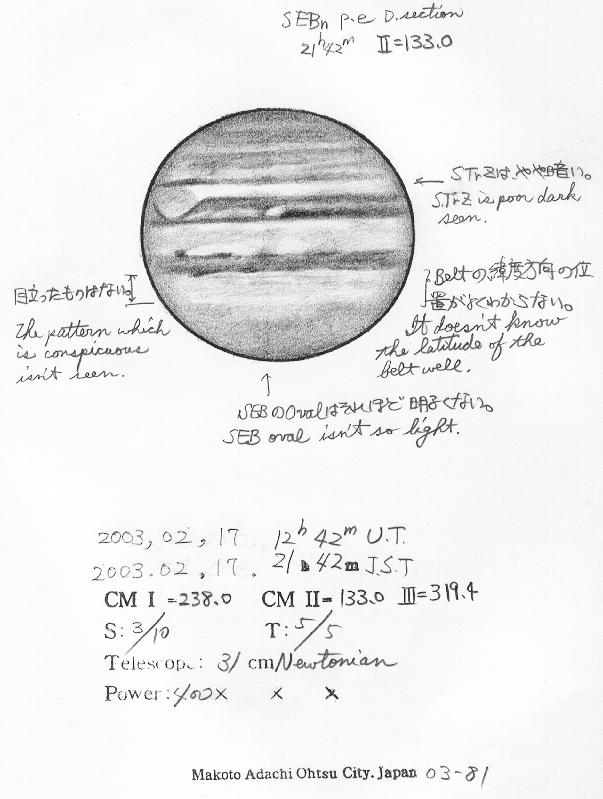 SEBn p.e D.section
21h42m II=133.0
← STrZは、やや暗い。
STrZ is poor dark
seen.
目立ったものはない。
The pattern which
is conspicuous
isn't seen.
? Beltの緯度方向の位
置がよくわからない。
It doesn't know
the latitude of the
belt well.
↑
SEBのOvalはそれほど明るくない。
SEB oval isn't so light.
2003, 02, 17 12h 42m U.T.
2003.02.17. 21h 42m J.S.T
CM I =238.0 CM II= 133.0 III=319.4
S: 3/10 T: 5/5
Telescope: 31 cm Newtonian
Power: 400× × ×
Makoto Adachi Ohtsu City. Japan 03-81